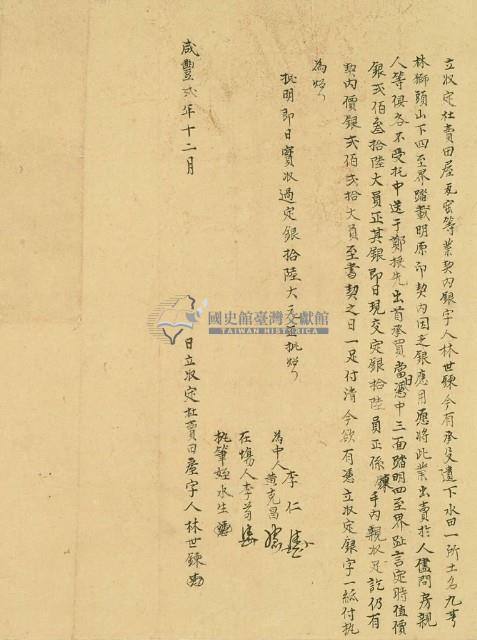 立收定杜賣田屋瓦窰等業契內銀字人林世鍊今有承父遺下水田一所土名九芎
林獅頭山下四至界踏載明原印契內因乏銀應用愿將此業出賣於人儘問房親
人等俱各不受托中送于鄭振先出首承買當日憑中三面踏明四至界趾言定時值價
銀弍佰叁拾陸大員正其銀即日現交定銀拾陸員正係鍊手內親收足訖仍有
契內價銀弍佰弍拾大員至書契之日一足付清今欲有憑立收定銀字一紙付执
為炤
批明即日實收過定銀拾陸大員批炤
為中人李仁
黃克昌
在塲人李芳
执筆姪水生
咸豐弍年十二月 日立收定杜賣田屋字人林世鍊
國史館臺灣文獻館
TAIWAN HISTORICA